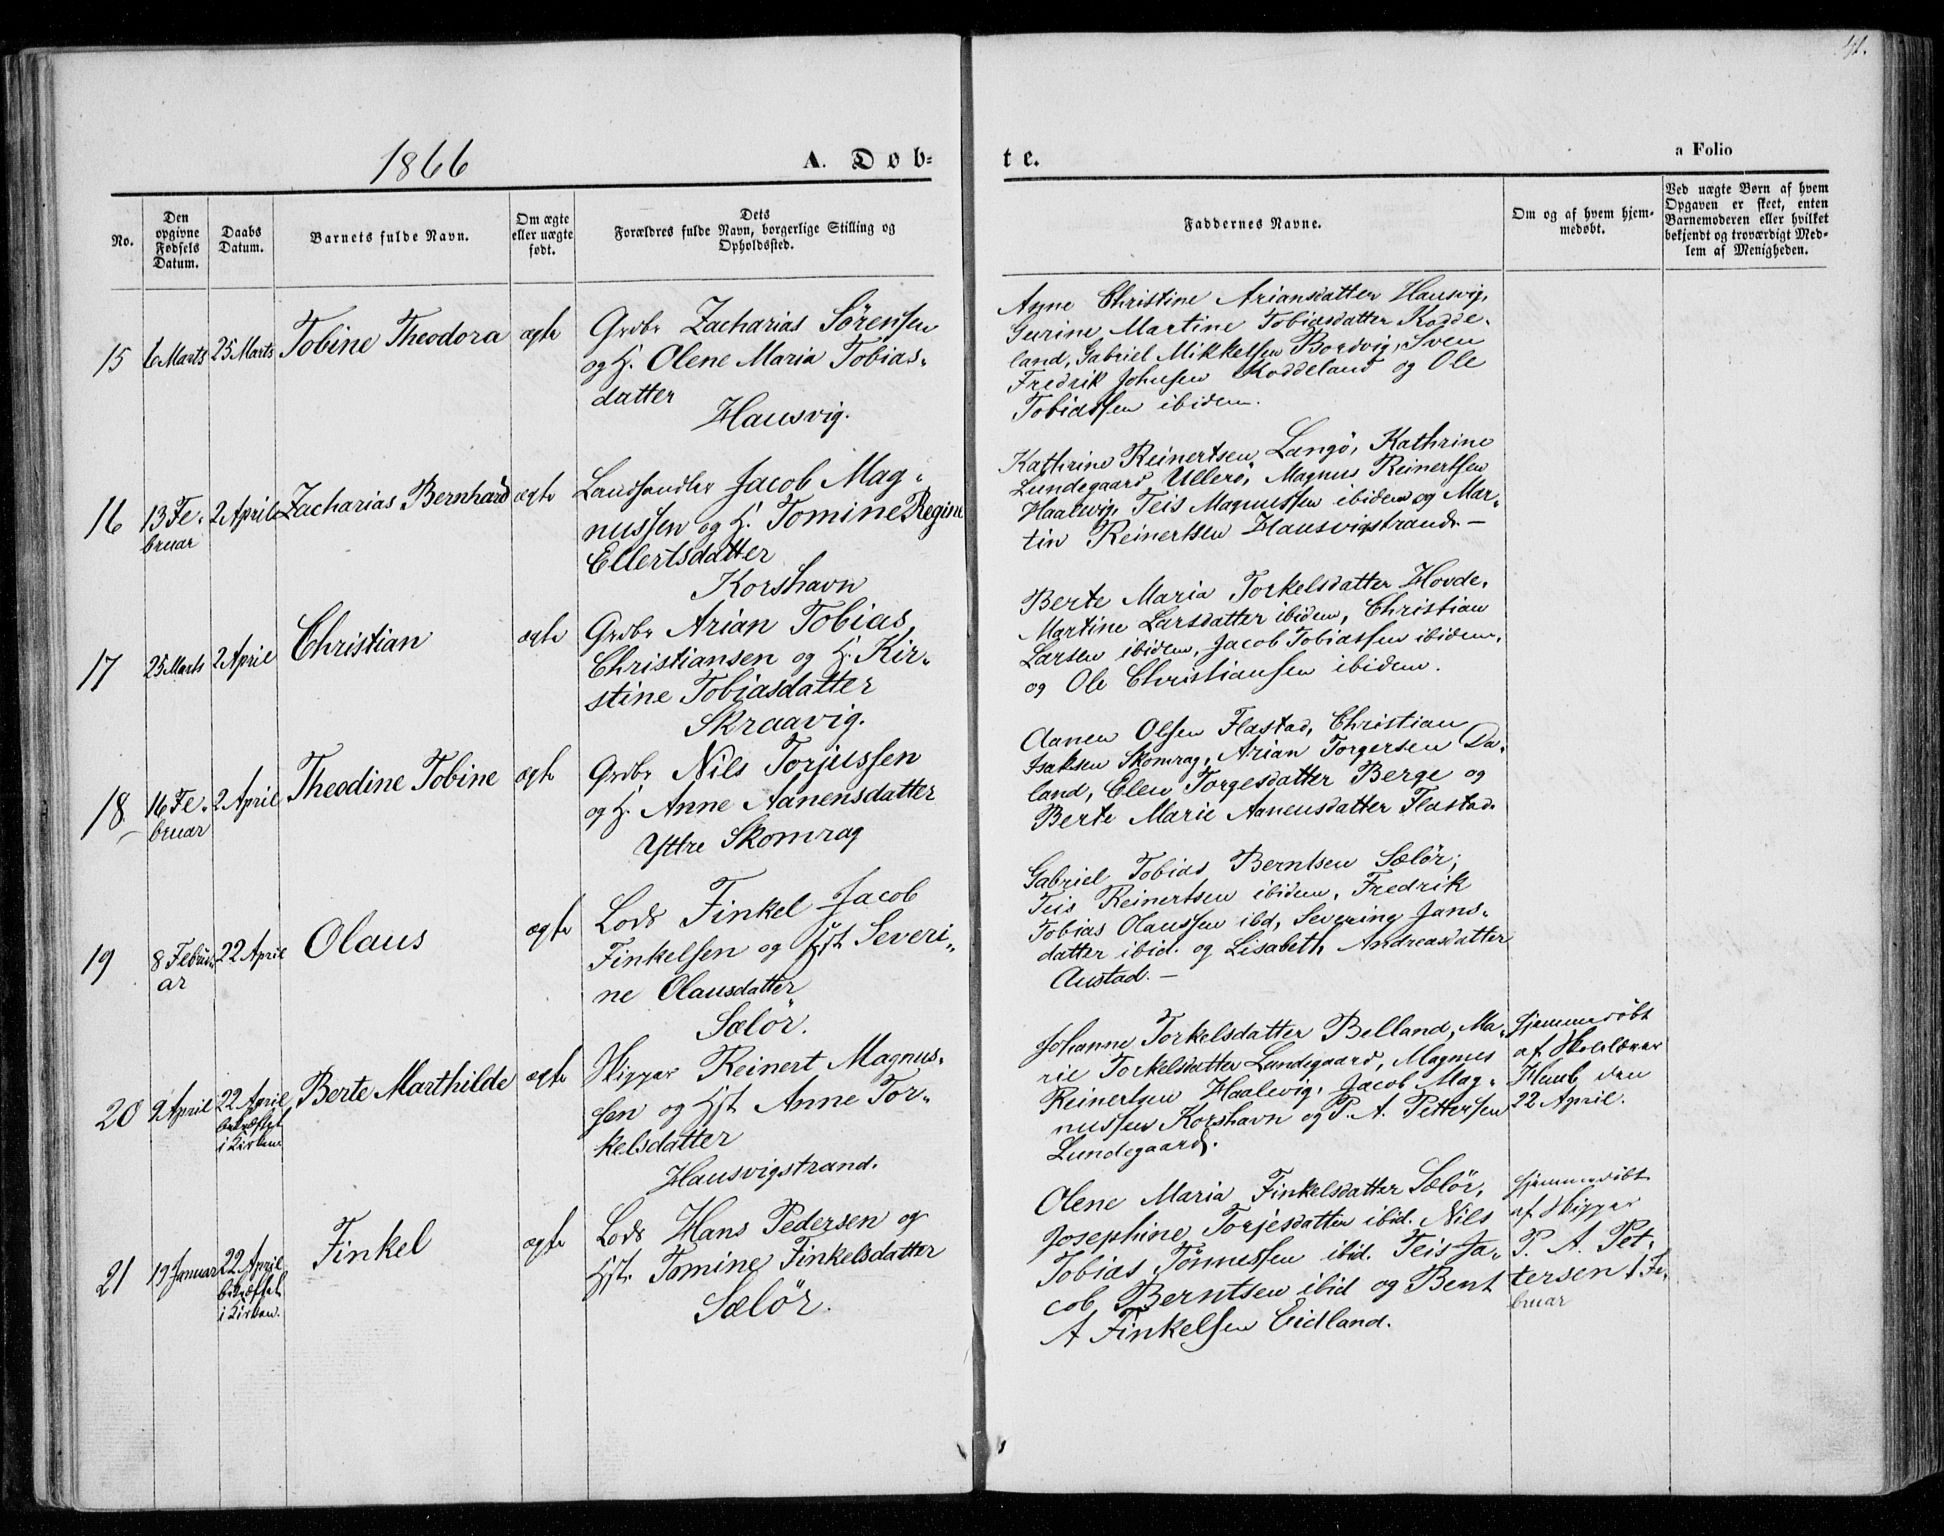 1866
A. Døb-
te.
a Folio
41.
No.
Den
opgivne
Fødsels
Datum.
Daabs
Datum.
Barnets fulde Navn.
Om ægte
eller uægte
født.
Dets
Forældres fulde Navn, borgerlige Stilling og
Opholdssted.
Faddernes Navne.
Om og af hvem hjem-
medøbt.
Ved uægte Børn af hvem
Opgaven er skeet, enten
Barnemoderen eller hvilket
bekjendt og troværdigt Med-
lem af Menigheden.
15
6 Marts
25 Marts
Tobine Theodora
ægte
Grdbr Zacharias Sörensen
og H. Olene Maria Tobias-
datter
Hausvig.
Anne Christine Ariansdatter Hausvig,
Gurine Martine Tobiasdatter Kodde-
land, Gabriel Mikkelsen Bordvig, Sven
Fredrik Johnsen Koddeland og Ole
Tobiassen ibidem.
16
13 Fe-
bruar
2 April
Zacharias Bernhard
ægte
Landhandler Jacob Mag-
nussen og H. Tomine Regine
Ellertsdatter
Korshavn
Kathrine Reinertsen Langö, Kathrine
Lundegaard Ullerö, Magnus Reinertsen
Haalevig, Teis Magnussen ibidem og Mar-
tin Reinertsen Hausvigstrand. —
17
25 Marts
2 April
Christian
ægte
Grdbr Arian Tobias
Christiansen og H. Kir-
stine Tobiasdatter
Skraavig.
Berte Maria Torkelsdatter Hovde,
Martine Larsdatter ibidem, Christian
Larsen ibidem, Jacob Tobiassen ibidem,
og Ole Christiansen ibidem.
18
16 Fe-
bruar
2 April
Theodine Tobine
ægte
Grdbr Nils Torjussen
og H. Anne Aanensdatter
Yttre Skomrag
Aanen Olsen Flastad, Christian
Isaksen Skomrag, Arian Torgersen Da-
land, Elen Torgesdatter Berge og
Berte Marie Aanensdatter Flastad.
19
8 Febru-
ar
22 April
Olaus
ægte
Lods Finkel Jacob
Finkelsen og Hst. Severi-
ne Olausdatter
Sælör.
Gabriel Tobias Berntsen Sælör,
Teis Reinertsen ibidem, Fredrik
Tobias Olaussen ibd, Severine Jans-
datter ibid. og Lisabeth Andreasdatter
Austad. —
20
2 April
22 April
bekræftet
i Kirken.
Berte Marthilde
ægte
Skipper Reinert Magnus-
sen og Hst Anne Tor-
kelsdatter
Hausvigstrand.
Johanne Torkelsdatter Belland, Ma-
rie Torkelsdatter Lundegaard, Magnus
Reinertsen Haalevig, Jacob Mag-
nussen Korshavn og P. A. Pettersen
Lundegaard.
Hjemmedöbt
af Skolelærer
den
22 April.
21
19 Januar
22 April
bekræftet
i Kirken.
Finkel
ægte
Lods Hans Pedersen og
Hst. Tomine Finkelsdatter
Sælör.
Olene Maria Finkelsdatter Sælör,
Josephine Torjesdatter ibid. Nils
Tobias Tönnessen ibid. Teis Ja-
cob Berntsen ibid og Bent
A Finkelsen Eidland.
Hjemmedöbt
af Skipper
P. A. Pet-
tersen 1 Fe-
bruar